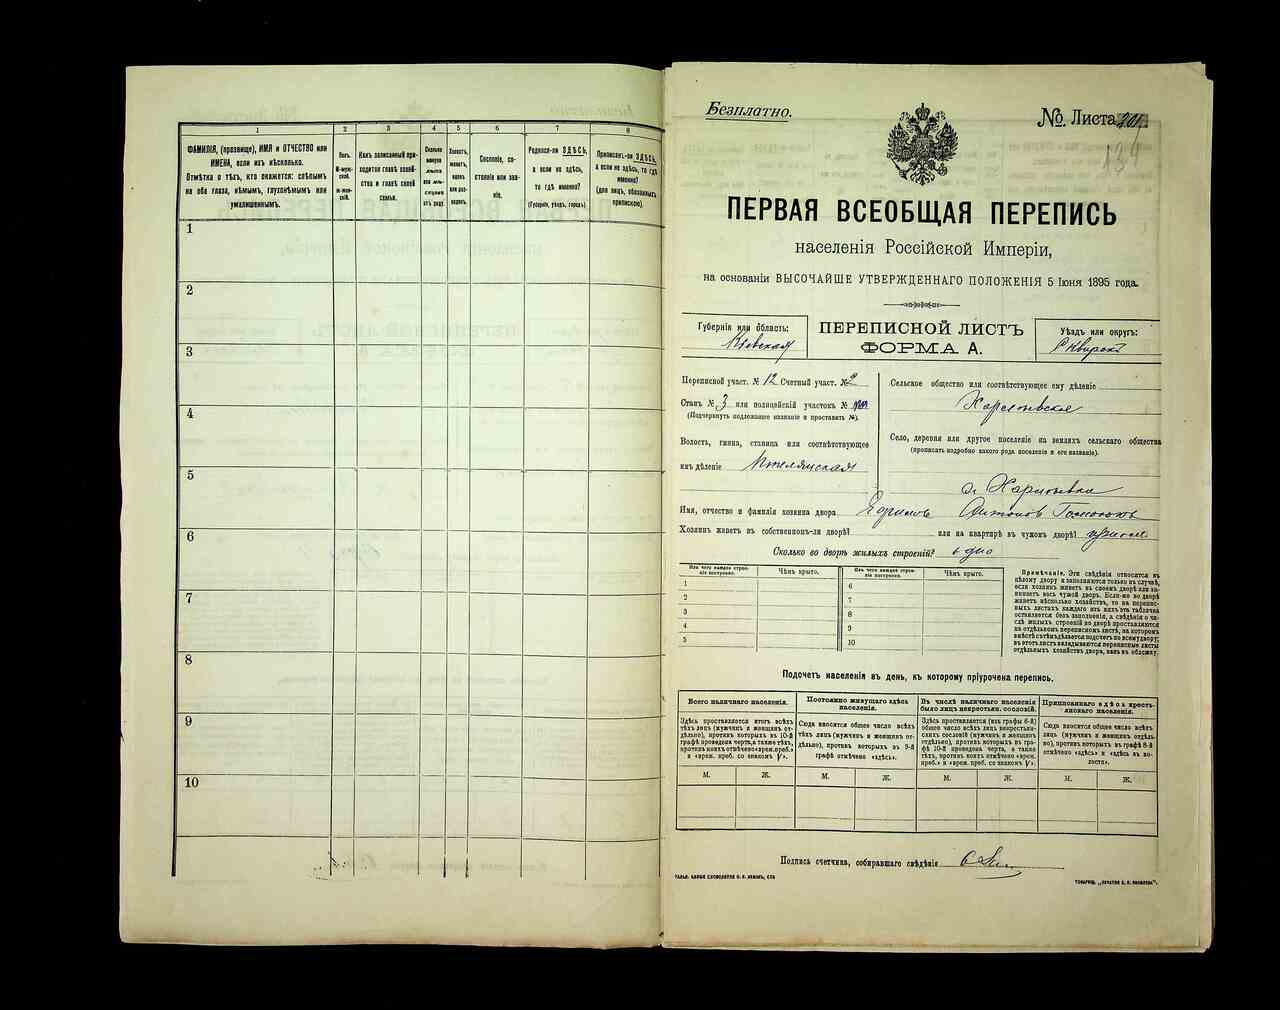 1
2
3
4
5
6
7
8
ФАМИЛІЯ, (прозвище), ИМЯ и ОТЧЕСТВО или
ИМЕНА, если ихъ нѣсколько.
Отмѣтка о тѣхъ, кто окажется: слѣпымъ
на оба глаза, нѣмымъ, глухонѣмымъ или
умалишеннымъ.
Полъ.
М-муж-
ской.
Ж-жен-
скій.
Какъ записанный при-
ходится главѣ хозяй-
ства и главѣ своей
семьи.
Сколько
минуло
лѣтъ
или мѣ-
сяцевъ
отъ роду.
Холостъ,
женатъ,
вдовъ
или раз-
веденъ.
Сословіе, со-
стояніе или зва-
ніе.
Родился-ли ЗДѢСЬ,
а если не здѣсь,
то гдѣ именно?
(Губернія, уѣздъ, городъ)
Приписанъ-ли ЗДѢСЬ,
а если не здѣсь, то гдѣ
именно?
(для лицъ, обязанныхъ
припискою).
1
2
3
4
5
6
7
8
9
10
Безплатно.
№ Листа 201
134
ПЕРВАЯ ВСЕОБЩАЯ ПЕРЕПИСЬ
населенія Россійской Имперіи,
на основаніи ВЫСОЧАЙШЕ УТВЕРЖДЕННАГО ПОЛОЖЕНІЯ 5 Іюня 1895 года.
Губернія или область:
Кіевская
ПЕРЕПИСНОЙ ЛИСТЪ
ФОРМА А.
Уѣздъ или округъ:
Сквирскій
Переписной участ. № 12 Счетный участ. №
Станъ № 3 или полицейскій участокъ №
(Подчеркнуть подлежащее названіе и проставить №).
Волость, гмина, станица или соотвѣтствующее
имъ дѣленіе
Сельское общество или соотвѣтствующее ему дѣленіе
Село, деревня или другое поселеніе на земляхъ сельскаго общества
(прописать подробно какого рода поселеніе и его названіе).
Имя, отчество и фамилія хозяина двора
Хозяинъ живетъ въ собственномъ-ли дворѣ? или на квартирѣ въ чужомъ дворѣ?
Сколько во дворѣ жилыхъ строеній? одно
Изъ чего каждое строе-
ніе построено.
Чѣмъ крыто.
Изъ чего каждое строе-
ніе построено.
Чѣмъ крыто.
1
2
3
4
5
6
7
8
9
10
Примѣчаніе. Эти свѣдѣнія относятся къ
цѣлому двору и заполняются только въ случаѣ,
если хозяинъ живетъ въ своемъ дворѣ или за-
нимаетъ весь чужой дворъ. Если-же во дворѣ
живетъ нѣсколько хозяйствъ, то на перепис-
ныхъ листахъ каждаго изъ нихъ эта табличка
оставляется безъ заполненія, а свѣдѣнія о чи-
слѣ жилыхъ строеній во дворѣ проставляются
на отдѣльномъ переписномъ листѣ, на которомъ
вмѣстѣ съ тѣмъ дѣлается подсчетъ по всему двору;
въ этотъ листъ вкладываются переписные листы
отдѣльныхъ хозяйствъ двора, какъ въ обложку.
Подсчетъ населенія въ день, къ которому пріурочена перепись.
Всего наличнаго населенія.
Здѣсь проставляется итогъ всѣхъ
лицъ (мужчинъ и женщинъ от-
дѣльно), противъ которыхъ въ 10-й
графѣ проведена черта, а также тѣхъ,
противъ коихъ отмѣчено «врем. преб.»
и «врем. преб. со знакомъ V».
Постоянно живущаго здѣсь
населенія.
Сюда вносится общее число всѣхъ
тѣхъ лицъ (мужчинъ и женщинъ от-
дѣльно), противъ которыхъ въ 9-й
графѣ отмѣчено «здѣсь».
Въ числѣ наличнаго населенія
было лицъ некрестьян. сословій.
Здѣсь проставляется (изъ графы 6-й)
общее число всѣхъ лицъ некрестьян-
скихъ сословій (мужчинъ и женщинъ
отдѣльно), противъ которыхъ въ гра-
фѣ 10-й проведена черта, а также
тѣхъ, противъ коихъ отмѣчено «врем.
преб.» и «врем. преб. со знакомъ V».
Приписаннаго здѣсь кресть-
янскаго населенія.
Сюда вносится общее число всѣхъ
лицъ (мужчинъ и женщинъ отдѣль-
но), противъ которыхъ въ графѣ 8-й
отмѣчено «здѣсь» и «здѣсь въ во-
лости».
М. Ж. М. Ж. М. Ж. М. Ж.
Подпись счетчика, собиравшаго свѣдѣнія